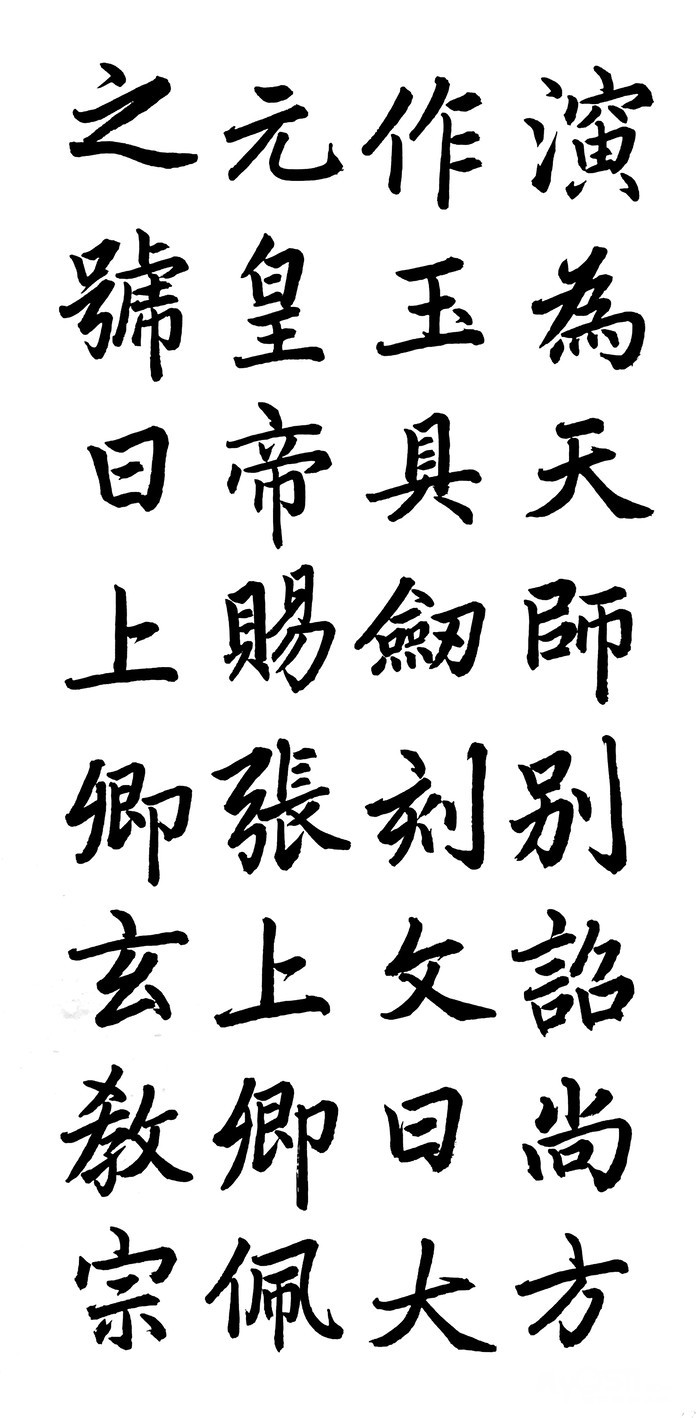 演為天師别詔尚方
作玉具劒刻文曰大
元皇帝賜張上卿佩
之號曰上卿玄教宗